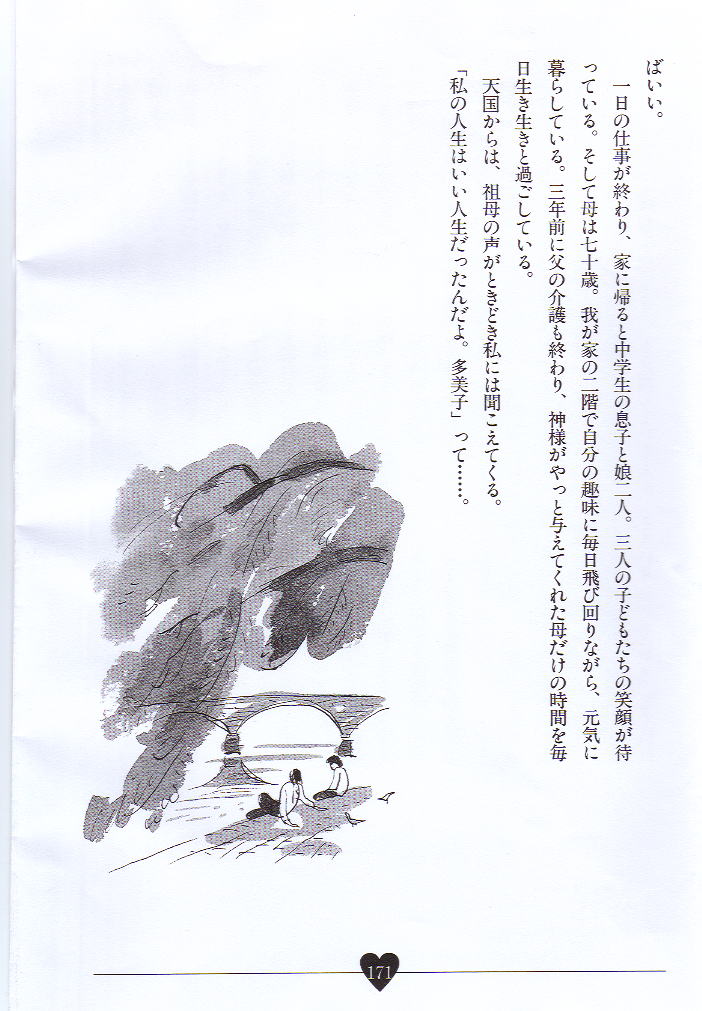 ばいい。
一日の仕事が終わり、家に帰ると中学生の息子と娘二人。三人の子どもたちの笑顔が待
っている。そして母は七十歳。我が家の二階で自分の趣味に毎日飛び回りながら、元気に
暮らしている。三年前に父の介護も終わり、神様がやっと与えてくれた母だけの時間を毎
日生き生きと過ごしている。
天国からは、祖母の声がときどき私には聞こえてくる。
「私の人生はいい人生だったんだよ。多美子」って……。
171